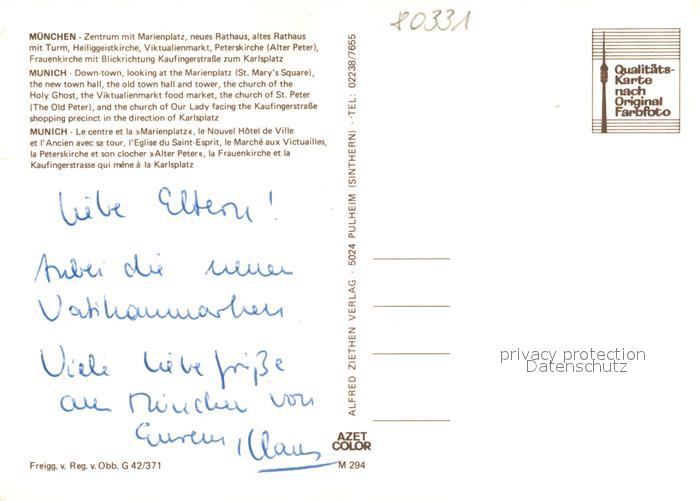 80331
MÜNCHEN - Zentrum mit Marienplatz, neues Rathaus, altes Rathaus
mit Turm, Heiliggeistkirche, Viktualienmarkt, Peterskirche (Alter Peter),
Frauenkirche mit Blickrichtung Kaufingerstraße zum Karlsplatz
MUNICH - Down-town, looking at the Marienplatz (St. Mary's Square),
the new town hall, the old town hall and tower, the church of the
Holy Ghost, the Viktualienmarkt food market, the church of St. Peter
(The Old Peter), and the church of Our Lady facing the Kaufingerstraße
shopping precinct in the direction of Karlsplatz
MUNICH - Le centre et la »Marienplatz«, le Nouvel Hôtel de Ville
et l'Ancien avec sa tour, l'Eglise du Saint-Esprit, le Marché aux Victuailles,
la Peterskirche et son clocher »Alter Peter«, la Frauenkirche et la
Kaufingerstrasse qui mène à la Karlsplatz
Liebe Eltern!
Anbei die neuen
Vatikanmarken
Viele liebe Grüße
aus München von
Eurem Klaus
Freigg. v. Reg. v. Obb. G 42/371
ALFRED ZIETHEN VERLAG · 5024 PULHEIM (SINTHERN) · TEL: 02238/7655
AZET
COLOR
M 294
Qualitäts-
Karte
nach
Original
Farbfoto
privacy protection
Datenschutz